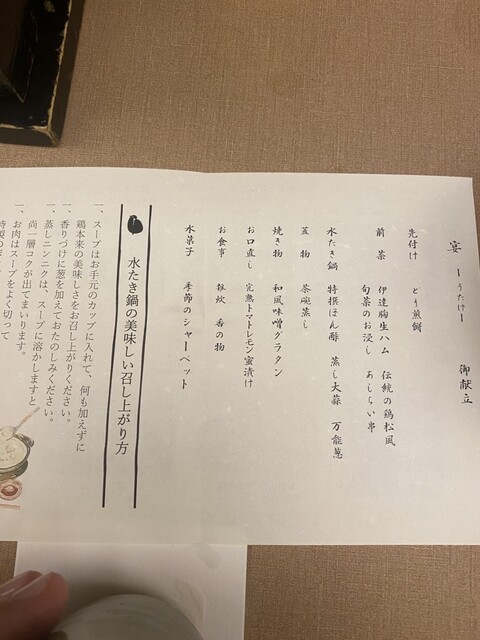 御献立
宴 ーうたげー
先付け とり煎餅
前菜 伊達鶏生ハム 伝統の鶏松風
旬菜のお浸し あしらい串
水たき鍋 特撰ぽん酢 蒸し大蒜 万能葱
蓋物 茶碗蒸し
焼き物 和風味噌グラタン
お口直し 完熟トマトレモン蜜漬け
お食事 雑炊 香の物
水菓子 季節のシャーベット
水たき鍋の美味しい召し上がり方
一、スープはお手元のカップに入れて、何も加えずに
鶏本来の美味しさをお召し上がりください。
一、香りづけに葱を加えておたのしみください。
一、蒸しニンニクは、スープに溶かしますと
尚一層コクが出てまいります。
一、お肉はスープをよく切って